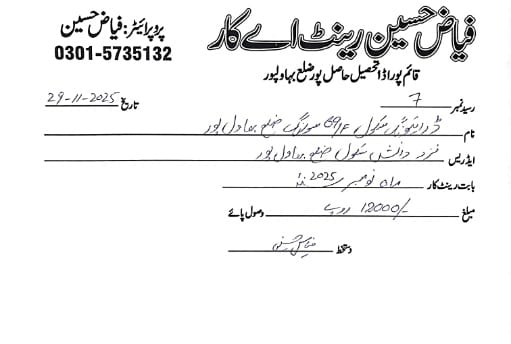 فیاض حسین رینٹ اے کار
پروپرائیٹر: فیاض حسین
0301-5735132
قائم پور اڈا تحصیل حاصل پور ضلع بہاولپور
رسید نمبر 7 تاریخ 29-11-2025
نام سکول 69/F ضلع بھاول پور
ایڈریس نزد دانش سکول ضلع بھاول پور
بابت رینٹ کار ماہ نومبر 2025
مبلغ 12000/- روپے وصول پائے
دستخط